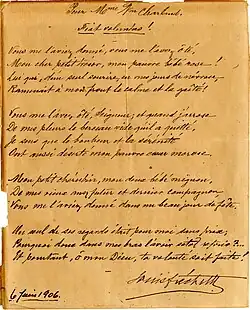 Pour Mme Chartrand.
Fiat voluntas!
Vous me l'aviez donné, vous me l'avez ôté,
Mon cher petit trésor, mon pauvre bébé rose!
Lui qui, d'un seul sourire, en mes jours de névrose,
Ramenait à mon front le calme et la gaîté!
Vous me l'avez ôté, Seigneur, et quand j'arrose
De mes pleurs le berceau vide qu'il a quitté,
Je sens que le bonheur et la sérénité
Ont aussi déserté mon pauvre cœur morose.
Mon petit chérubin, mon doux bébé mignon,
De mes vieux ans futur et dernier compagnon
Vous me l'aviez donné dans un beau jour de fête.
Un seul de ses regards était pour moi sans prix;
Pourquoi donc dans mes bras l'avoir sitôt repris?...
Et pourtant, ô mon Dieu, ta volonté soit faite!
Louis Fréchette
6 Juin 1906.